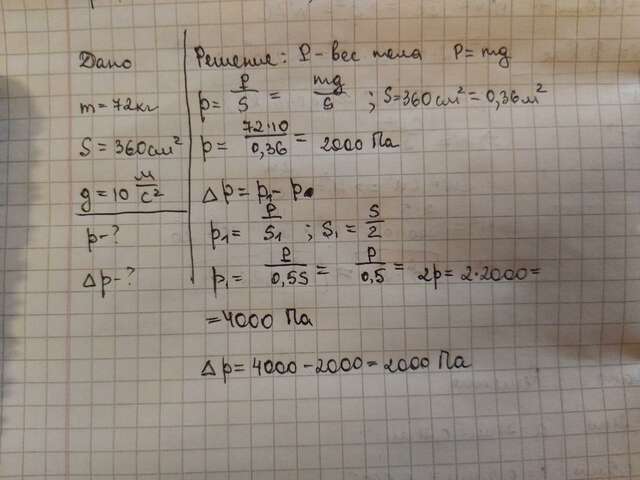 Дано
m = 72кг
S = 360см²
g = 10 м/с²
p-?
Δp-?
Решение: P - вес тела P = mg
p = P/S = mg/S ; S = 360см² = 0,36м²
p = 72·10/0,36 = 2000 Па
Δp = p₁ - p
p₁ = P/S₁ ; S₁ = S/2
p₁ = P/0,5S = p/0,5 = 2p = 2·2000 =
= 4000 Па
Δp = 4000 - 2000 = 2000 Па